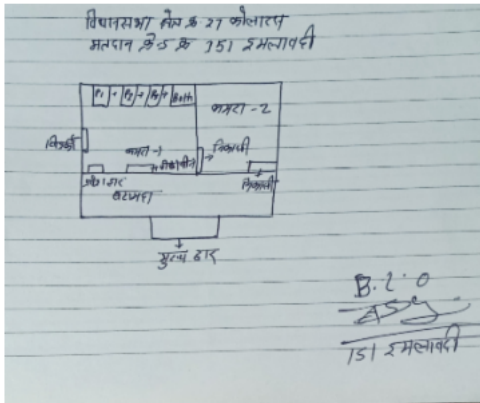 विधानसभा क्षेत्र क्र 27 कोलारस
मतदान केन्द्र क्र 151 इमलावदी
P1 P2 P3 Both
कमरा-2
खिडकी
कमरा-1
निकासी
प्रवेश द्वार
निकासी
बरामदा
मुख्य द्वार
B.L.O
151 इमलावदी